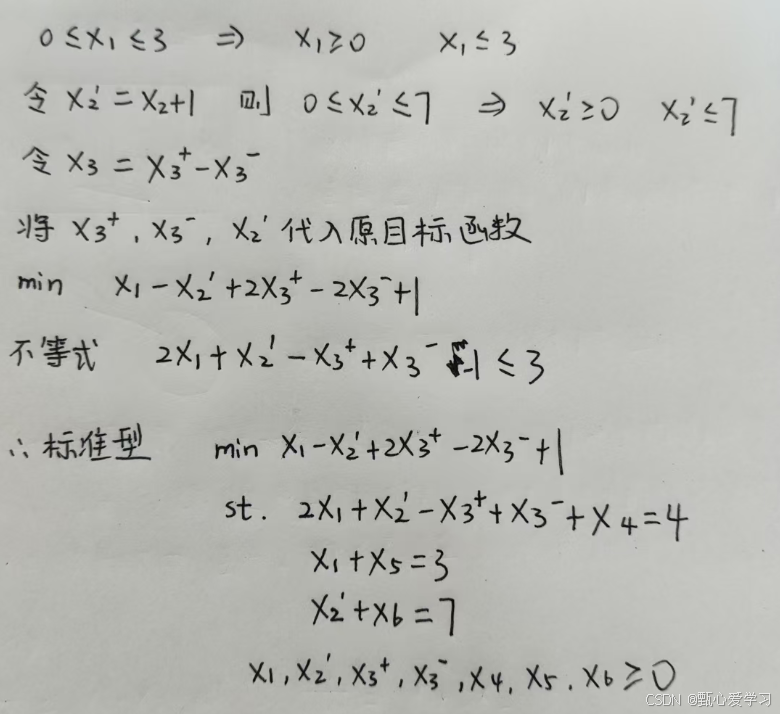 0≤x₁≤3 ⇒ x₁≥0 x₁≤3
令 x₂′=x₂+1 则 0≤x₂′≤7 ⇒ x₂′≥0 x₂′≤7
令 x₃=x₃⁺-x₃⁻
将 x₃⁺,x₃⁻,x₂′代入原目标函数
min x₁-x₂′+2x₃⁺-2x₃⁻+1
不等式 2x₁+x₂′-x₃⁺+x₃⁻-1≤3
∴标准型 min x₁-x₂′+2x₃⁺-2x₃⁻+1
st. 2x₁+x₂′-x₃⁺+x₃⁻+x₄=4
x₁+x₅=3
x₂′+x₆=7
x₁,x₂′,x₃⁺,x₃⁻,x₄,x₅,x₆≥0
CSDN @甄心爱学习